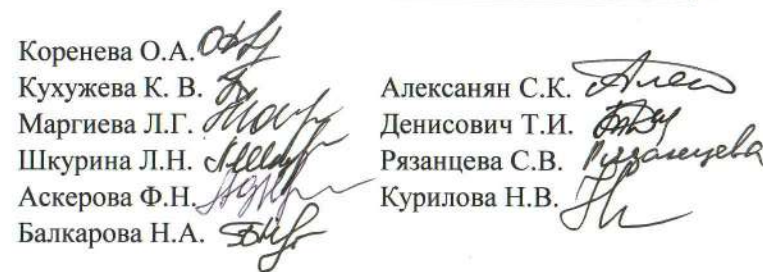 Коренева О.А.
Кухужева К. В.
Маргиева Л.Г.
Шкурина Л.Н.
Аскерова Ф.Н.
Балкарова Н.А.
Алексанян С.К.
Денисович Т.И.
Рязанцева С.В. Рязанцева
Курилова Н.В.